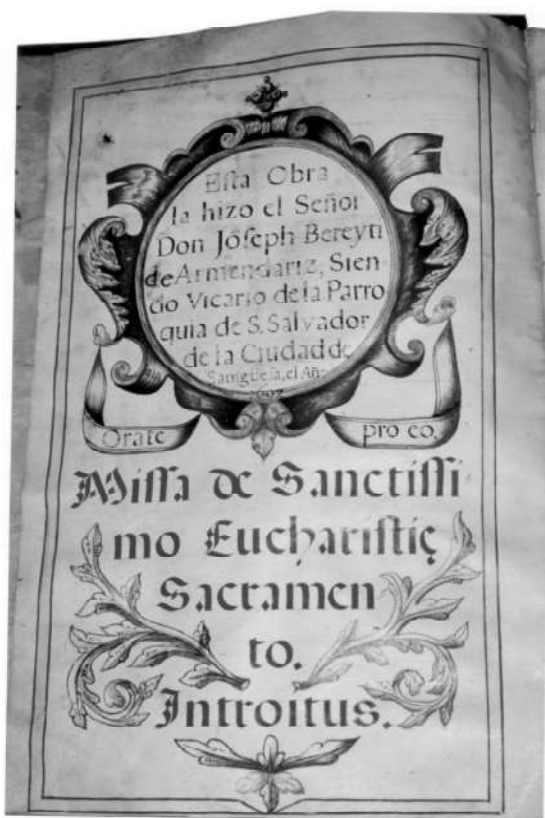 Eſta Obra
la hizo el Señor
Don Joſeph Bereyn
de Armendariz, Sien
do Vicario de la Parro
quia de S. Salvador
de la Ciudad de
Sangueſa, el Año
Orate
pro eo.
Miſſa de Sanctiſſi
mo Euchariſtię
Sacramen
to.
Introitus.